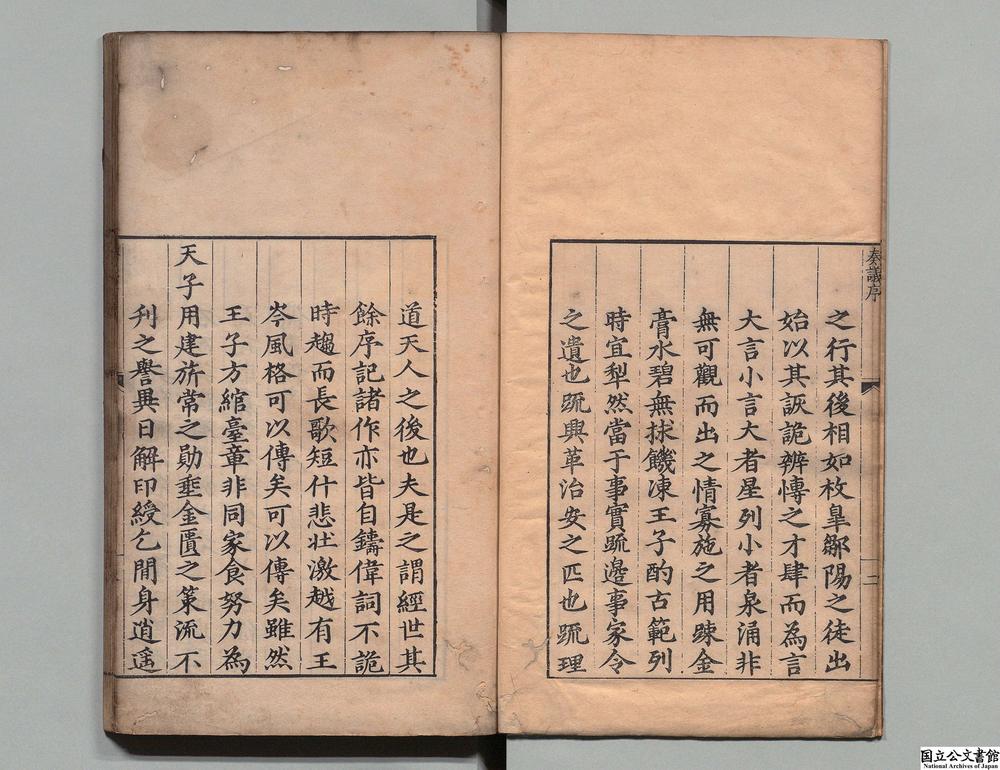 奏議序
二
之行其後相如枚臯鄒陽之徒出
始以其詼詭辨慱之才肆而為言
大言小言大者星列小者泉涌非
無可觀而出之情寡施之用踈金
膏水碧無捄饑凍王子酌古範列
時宜犁然當于事實䟽邊事家令
之遺也䟽興革治安之匹也䟽理
道天人之後也夫是之謂經世其
餘序記諸作亦皆自鑄偉詞不詭
時趨而長歌短什悲壯激越有王
岑風格可以傳矣可以傳矣雖然
王子方綰臺章非同家食努力為
天子用建旂常之勛垂金匱之策流不
刋之譽異日解印綬乞閒身逍遥
国立公文書館
National Archives of Japan